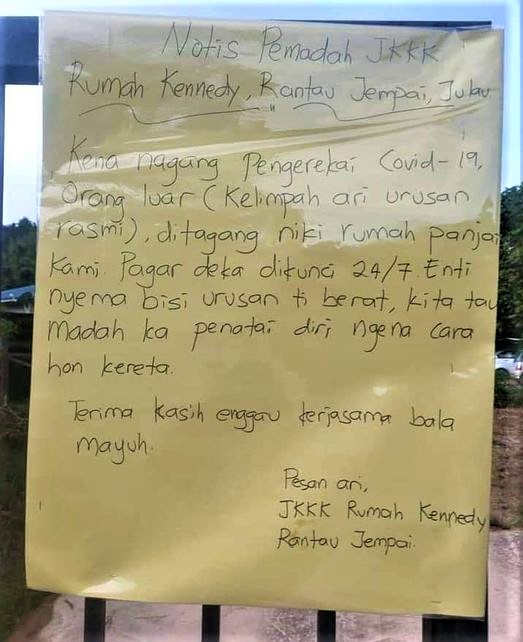 Notis Pemadah JKKK
Rumah Kennedy, Rantau Jempai, Julau
Kena nagang Pengerekai Covid-19,
Orang luar (Kelimpah ari urusan
rasmi), ditagang niki rumah panjai
kami. Pagar deka dikunci 24/7. Enti
nyema bisi urusan ti berat, kita tau
madah ka penatai diri ngena cara
hon kereta.
Terima Kasih enggau kerjasama bala
mayuh.
Pesan ari,
JKKK Rumah Kennedy
Rantau Jempai.